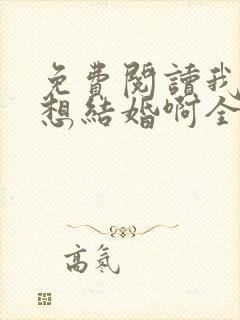 免費閱讀我
想結婚啊全
高氣